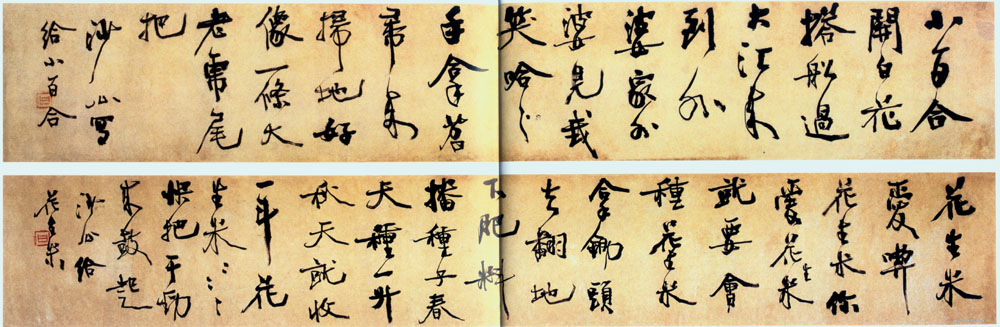 小百合
開白花
搭船過
大江来
到外
婆家外
婆見我
笑哈〻
手拿苕
帚来
掃地好
像一條大
老虎尾
把
沙公寫
給小百合
花生米
愛
花生米你
愛花生米
就要會
種花生米
拿鋤頭
去翻地
下肥料
播種子春
天種一升
秋天就收
一斗花
生米〻〻〻
快把干勁
来鼓起
沙公給
花生米